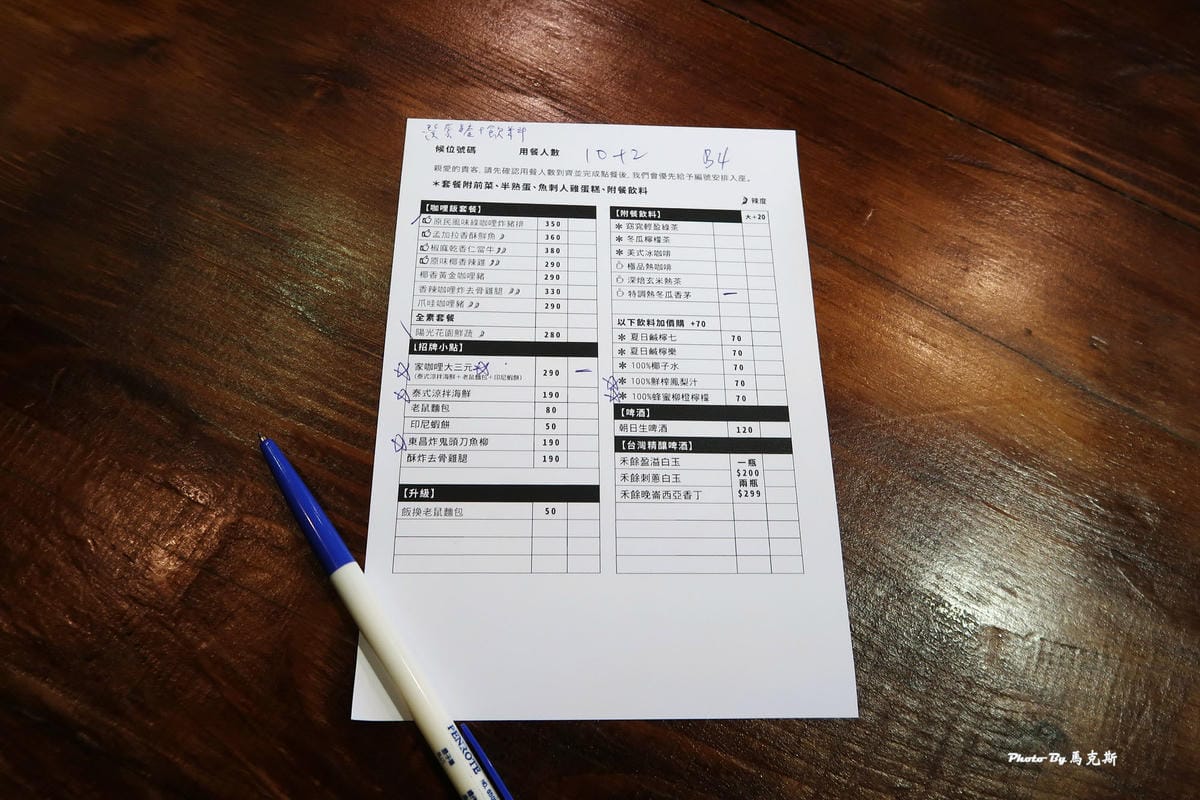 選套餐+飲料
候位號碼 用餐人數 10+2 B4
親愛的貴客, 請先確認用餐人數到齊並完成點餐後, 我們會優先給予編號安排入座。
*套餐附前菜、半熟蛋、魚刺人雞蛋糕、附餐飲料
辣度
【咖哩飯套餐】
原民風味綠咖哩炸豬排 350
孟加拉香酥鮮魚 360
椒麻乾香仁當牛 380
原味椰香辣雞 290
椰香黃金咖哩豬 290
香辣咖哩炸去骨雞腿 330
爪哇咖哩豬 290
全素套餐
陽光花園鮮蔬 280
【招牌小點】
家咖哩大三元 290 一
(泰式涼拌海鮮+老鼠麵包+印尼蝦餅)
泰式涼拌海鮮 190
老鼠麵包 80
印尼蝦餅 50
東昌炸鬼頭刀魚柳 190
酥炸去骨雞腿 190
【升級】
飯換老鼠麵包 50
【附餐飲料】 大+20
* 窈窕輕盈綠茶
* 冬瓜檸檬茶
* 美式冰咖啡
極品熱咖啡
深焙玄米熱茶
特調熱冬瓜香茅 一
以下飲料加價購 +70
* 夏日鹹檸七 70
* 夏日鹹檸樂 70
* 100%椰子水 70
* 100%鮮榨鳳梨汁 70
* 100%蜂蜜柳橙檸檬 70
【啤酒】
朝日生啤酒 120
【台灣精釀啤酒】
禾餘盈溢白玉 一瓶
禾餘刺蔥白玉 $200
兩瓶
禾餘晚崙西亞香丁 $299
PENROTE
NO.
Photo By 馬克斯